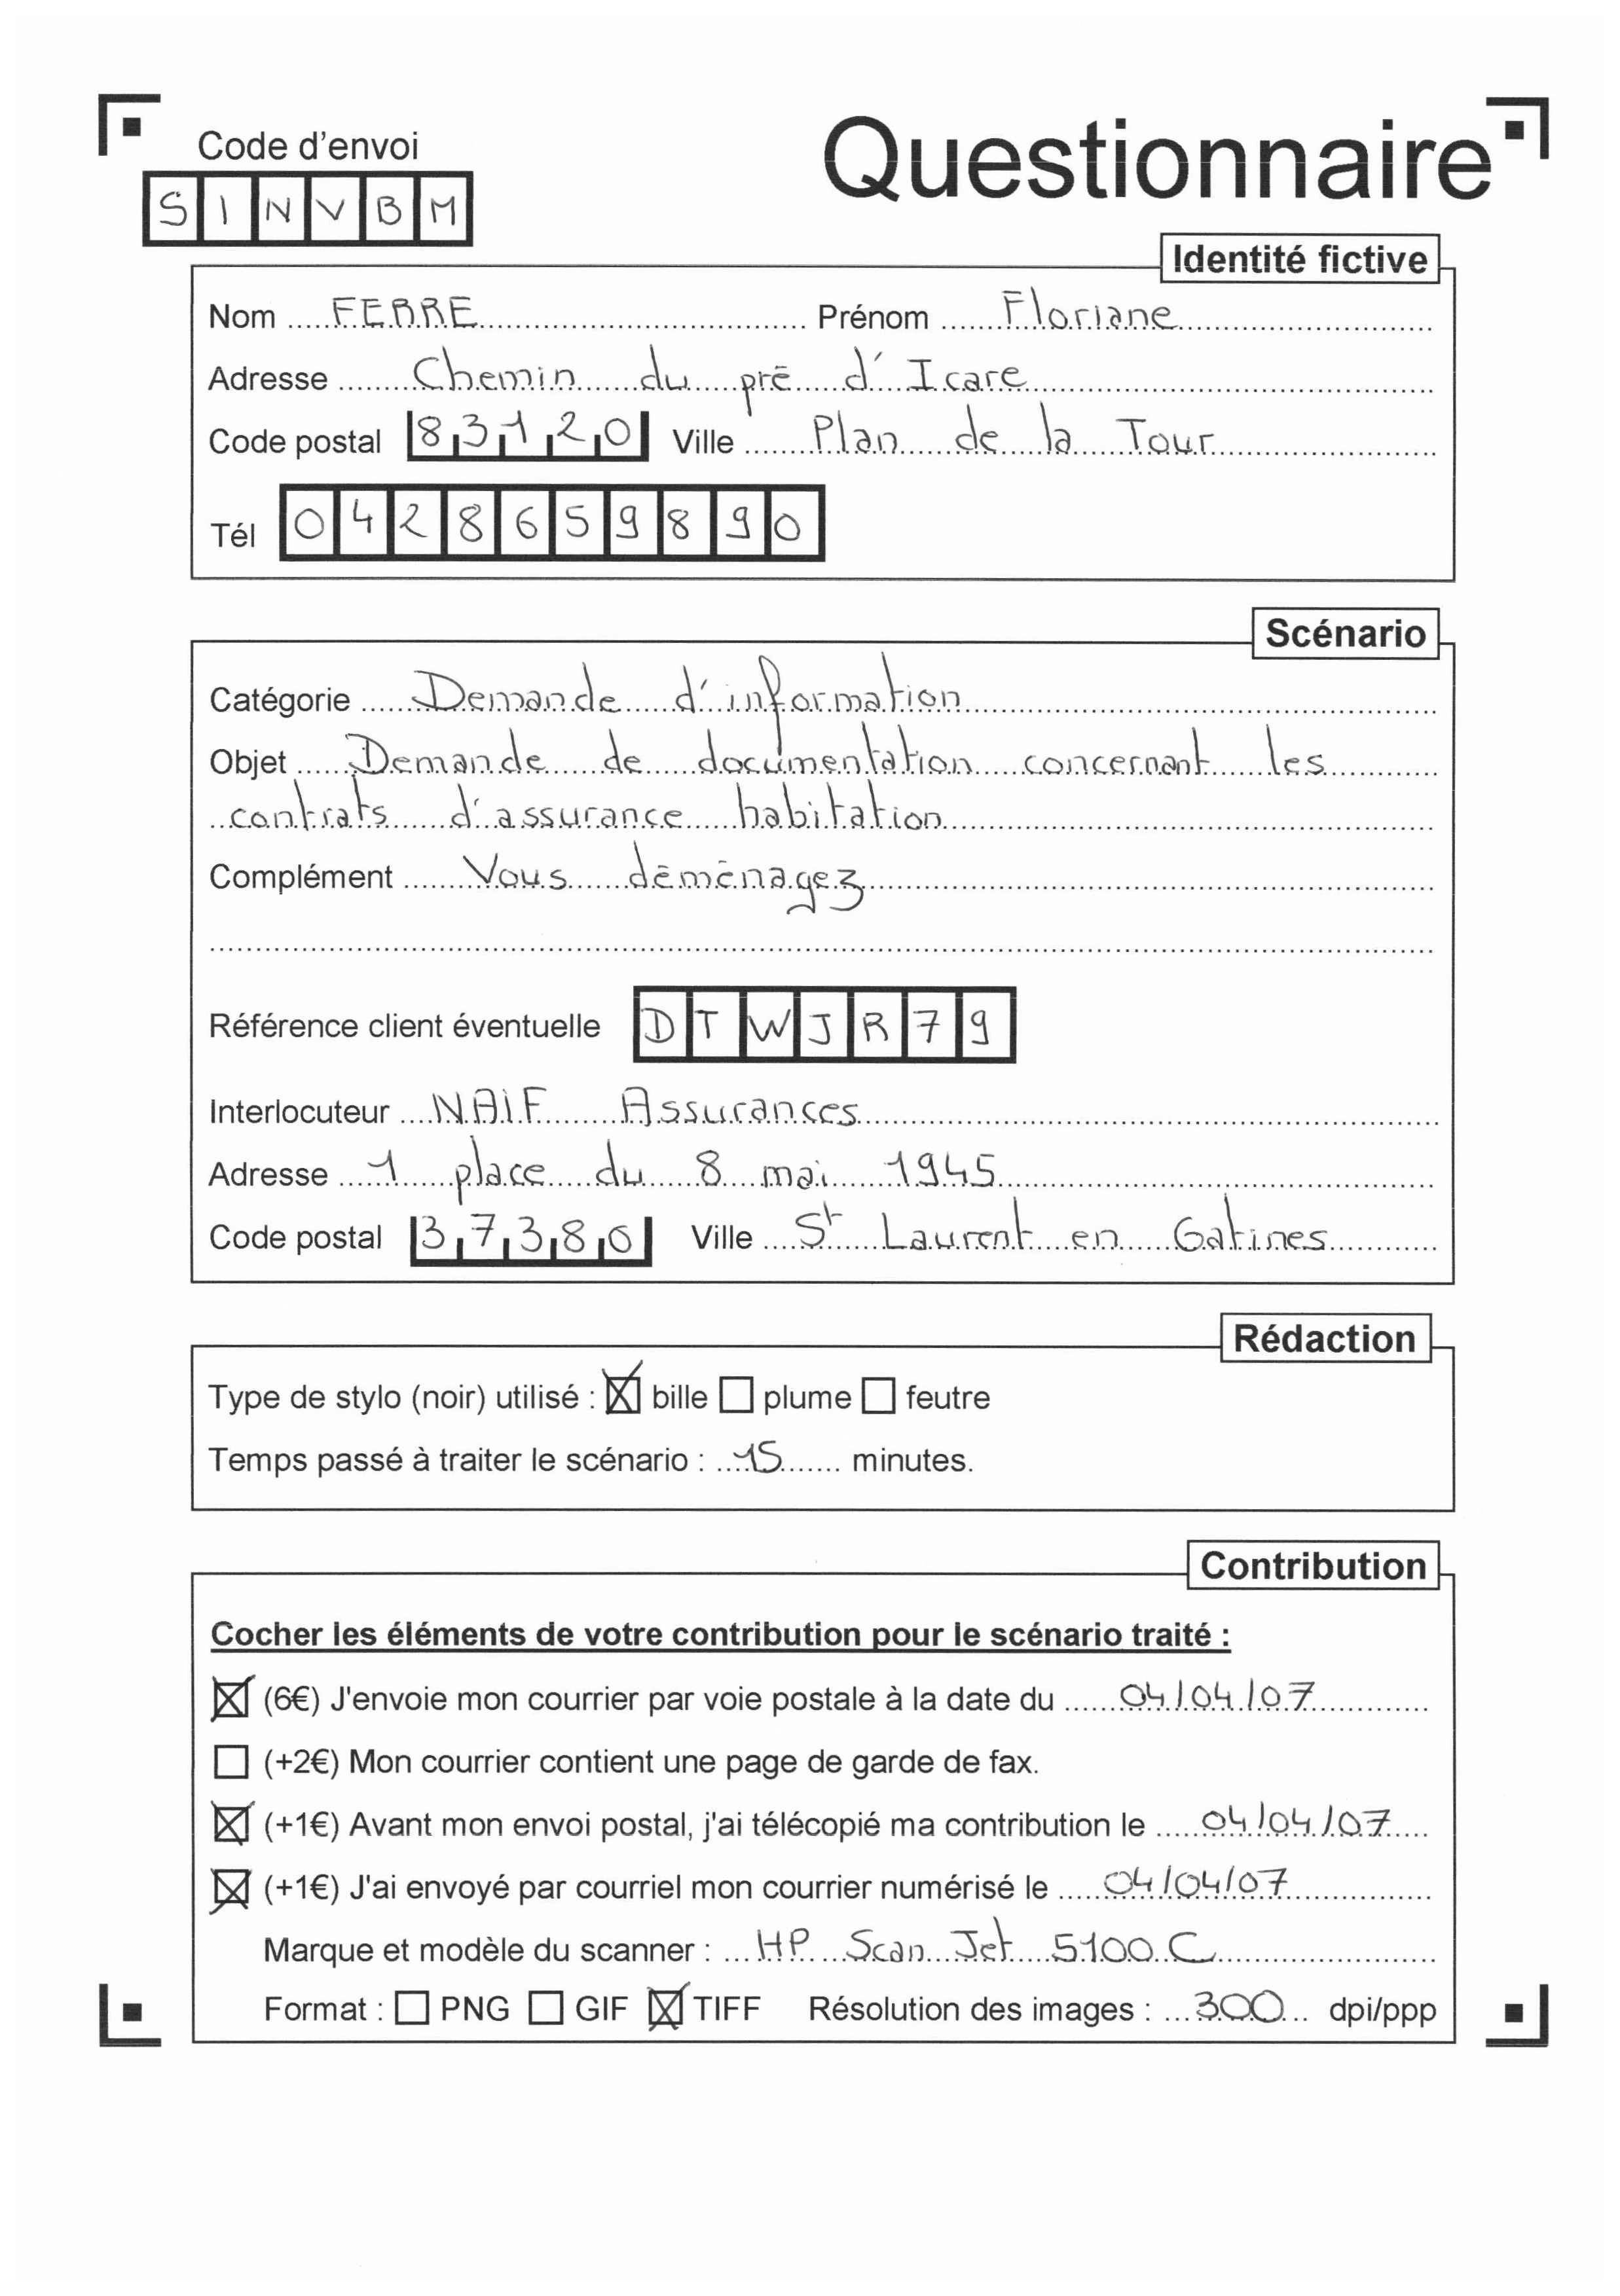 Code d'envoi
Questionnaire
SINVBM
Identité fictive
Nom FERRE Prénom Floriane
Adresse Chemin du pré d'Icare
Code postal 83120 Ville Plan de la Tour
Tél 0428659890
Scénario
Catégorie Demande d'information
Objet Demande de documentation concernant les
contrats d'assurance habitation
Complément Vous déménagez
Référence client éventuelle DTWJR79
Interlocuteur NAIF Assurances
Adresse 1 place du 8 mai 1945
Code postal 37380 Ville St Laurent en Gatines
Rédaction
Type de stylo (noir) utilisé : ☒ bille ☐ plume ☐ feutre
Temps passé à traiter le scénario : 15 minutes.
Contribution
Cocher les éléments de votre contribution pour le scénario traité :
☒ (6€) J'envoie mon courrier par voie postale à la date du 04/04/07
☐ (+2€) Mon courrier contient une page de garde de fax.
☒ (+1€) Avant mon envoi postal, j'ai télécopié ma contribution le 04/04/07
☒ (+1€) J'ai envoyé par courriel mon courrier numérisé le 04/04/07
Marque et modèle du scanner : HP Scan Jet 5100 C
Format : ☐ PNG ☐ GIF ☒ TIFF Résolution des images : 300 dpi/ppp